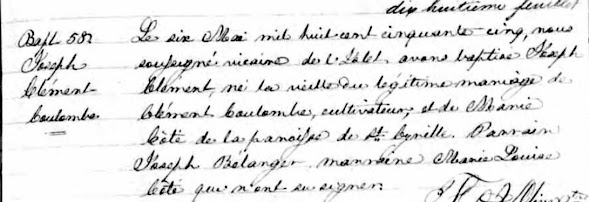 dix huitième feuillet
Bapt. 58e
Joseph
Clément
Coulombe.
Le six Mai mil huit cent cinquante cinq, nous
soussigné vicaire de l'Islet avons baptisé Joseph
Clément, né la vieille du légitime mariage de
Clément Coulombe, cultivateur, et de Marie
Côté de la paroisse de St. Cyrille. Parrain
Joseph Bélanger marraine Marie Louise
Côté qui n'ont su signer.